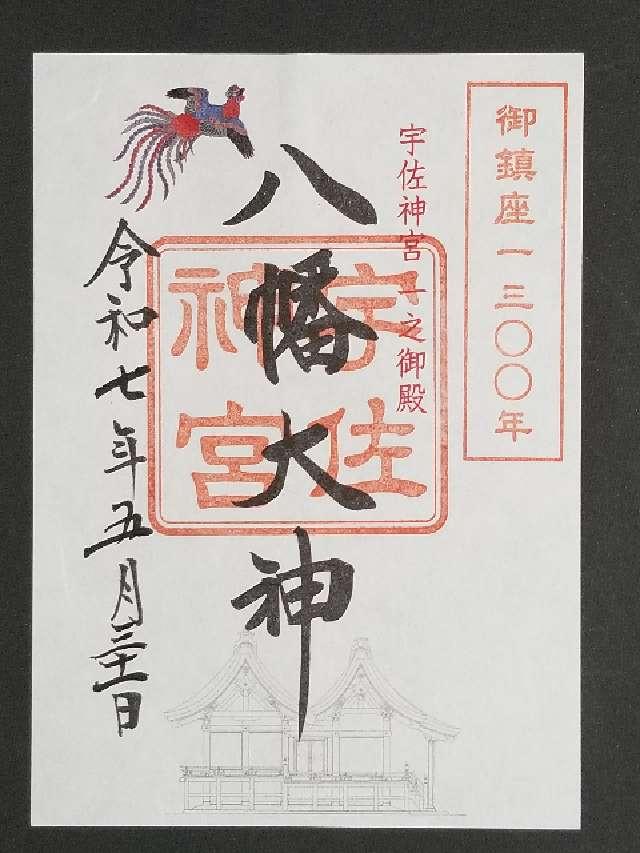 御鎮座一三〇〇年
宇佐神宮 一之御殿
八幡大神
宇佐
神宮
令和七年五月三十一日